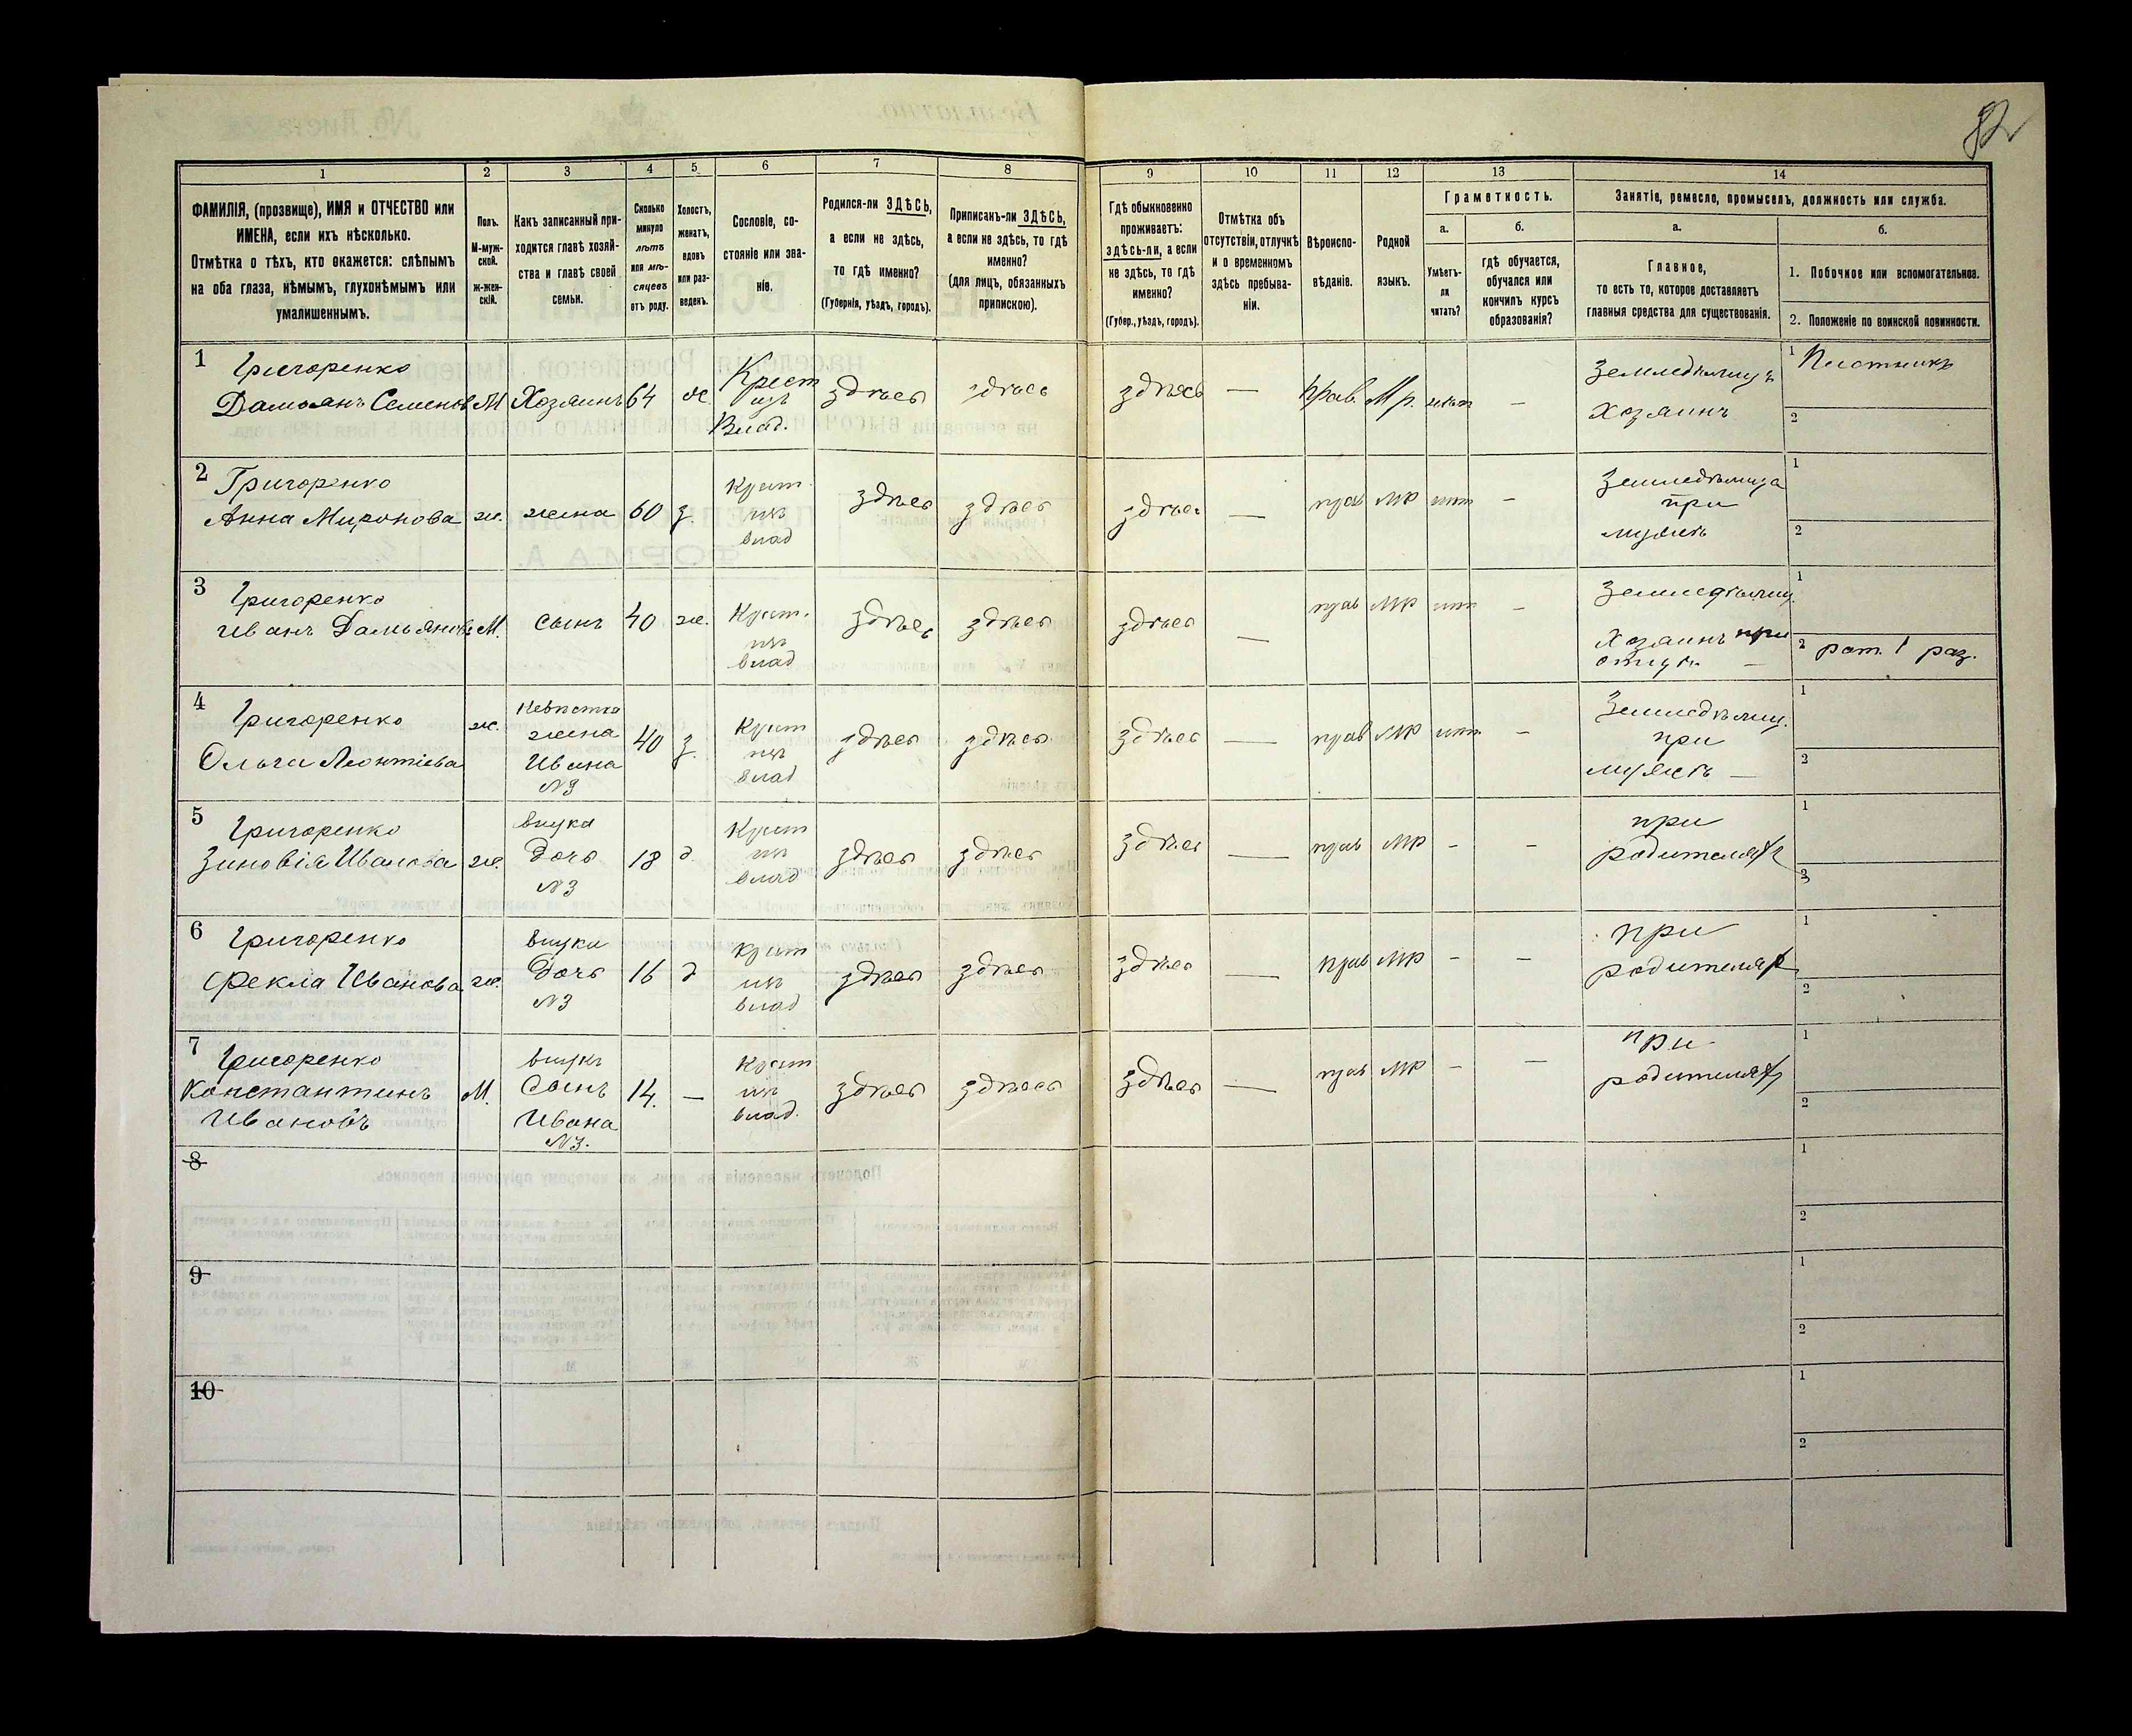 82
1 2 3 4 5 6 7 8 9 10 11 12 13 14
ФАМИЛІЯ, (прозвище), ИМЯ и ОТЧЕСТВО или
ИМЕНА, если ихъ нѣсколько.
Отмѣтка о тѣхъ, кто окажется: слѣпымъ
на оба глаза, нѣмымъ, глухонѣмымъ или
умалишеннымъ.
Полъ.
М-муж-
ской.
ж-жен-
скій.
Какъ записанный при-
ходится главѣ хозяй-
ства и главѣ своей
семьи.
Сколько
минуло
лѣтъ
или мѣ-
сяцевъ
отъ роду.
Холостъ,
женатъ,
вдовъ
или раз-
веденъ.
Сословіе, со-
стояніе или зва-
ніе.
Родился-ли ЗДѢСЬ,
а если не здѣсь,
то гдѣ именно?
(Губернія, уѣздъ, городъ).
Приписанъ-ли ЗДѢСЬ,
а если не здѣсь, то гдѣ
именно?
(для лицъ, обязанныхъ
припискою).
Гдѣ обыкновенно
проживаетъ:
здѣсь-ли, а если
не здѣсь, то гдѣ
именно?
(Губер., уѣздъ, городъ).
Отмѣтка объ
отсутствіи, отлучкѣ
и о временномъ
здѣсь пребыва-
ніи.
Вѣроиспо-
вѣданіе.
Родной
языкъ.
Грамотность.
а.
Умѣетъ-
ли
читать?
б.
гдѣ обучается,
обучался или
кончилъ курсъ
образованія?
Занятіе, ремесло, промыселъ, должность или служба.
а.
Главное,
то есть то, которое доставляетъ
главныя средства для существованія.
б.
1. Побочное или вспомогательное.
2. Положеніе по воинской повинности.
1 Григоренко
Дамьянъ Семеновъ М Хозяинъ 64 ж. Крест из Влад. здѣсь здѣсь здѣсь — Прав. Мр. нѣтъ — Земледѣлецъ Хозяинъ 1 2
2 Григоренко
Анна Миронова ж. жена 60 з. Крест из влад здѣсь здѣсь здѣсь — прав мр нѣт — Земледѣлица при мужѣ 1 2
3 Григоренко
Иванъ Дамьяновъ М. сынъ 40 ж. Крест. из влад здѣсь здѣсь здѣсь — прав мр нѣт — Земледѣлец. Хозяинъ при отцѣ — 1 2 рат. 1 раз.
4 Григоренко
Ольга Леонтіева ж. Невѣстка жена Ивана №3 40 з. Крест из влад здѣсь здѣсь здѣсь — прав мр нѣт — Земледѣлиц. при мужѣ — 1 2
5 Григоренко
Зиновія Иванова ж. внука дочь №3 18 д. Крест из влад здѣсь здѣсь здѣсь — прав мр - - при родителях 1 2
6 Григоренко
Фекла Иванова ж. внука дочь №3 16 д Крест из влад здѣсь здѣсь здѣсь — прав мр - - при родителях 1 2
7 Григоренко
Константинъ
Ивановъ М. внукъ сынъ Ивана №3. 14. — Крест из влад. здѣсь здѣсь здѣсь — прав мр - — при родителях 1 2
8 1 2
9 1 2
10 1 2